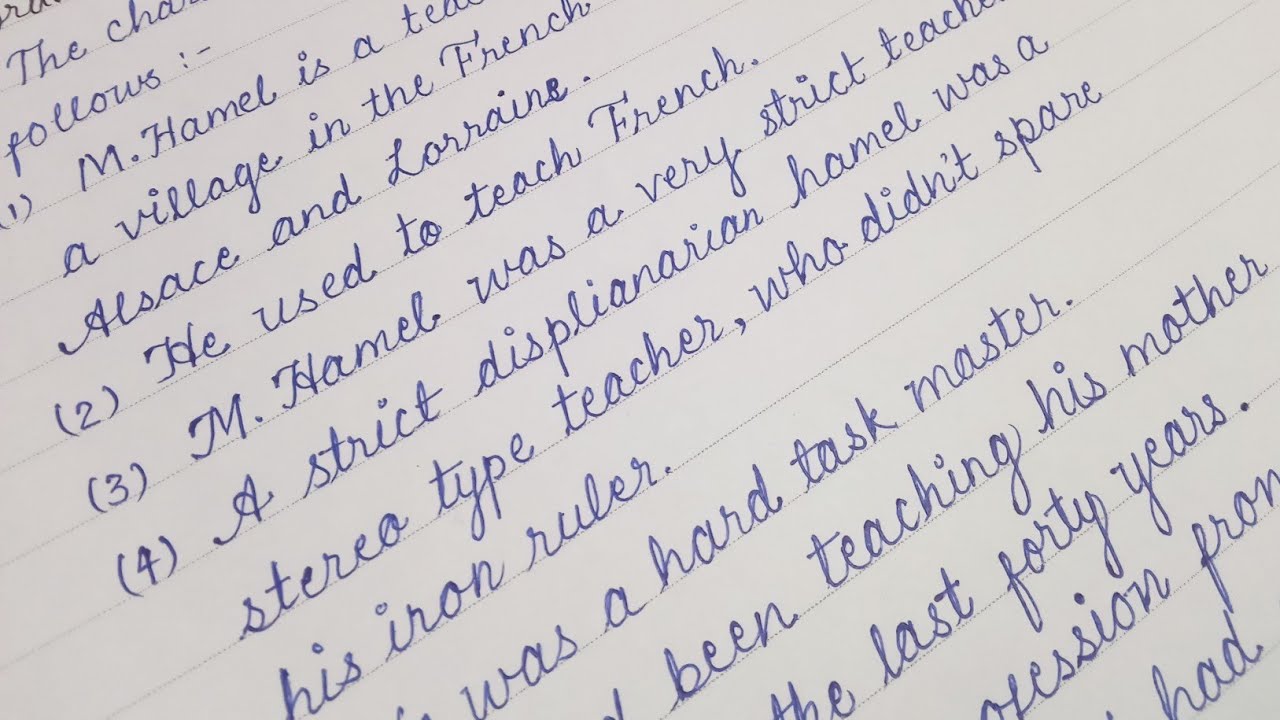 The char
follows :-
(1) M. Hamel is a teac
a village in the French
Alsace and Lorraine.
(2) He used to teach French.
(3) M. Hamel was a very strict teache
(4) A strict displianarian hamel was a
stereo type teacher, who didn't spare
his iron ruler.
was a hard task master.
been teaching his mother
the last forty years.
from
had